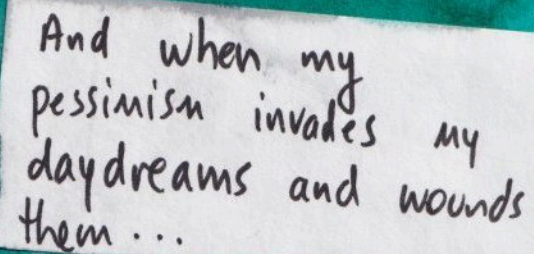 And when my
pessimism invades my
daydreams and wounds
them...